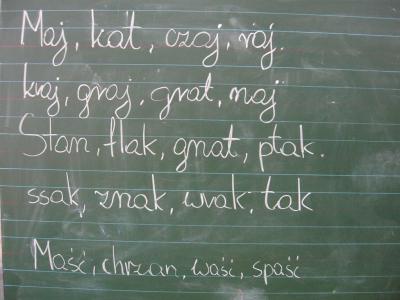 Maj, kat, czaj, raj.
kraj, graj, grat, naj
Stan, flak, gnat, ptak.
ssak, znak, wrak, tak
Maść, chrzan, waść, spaść